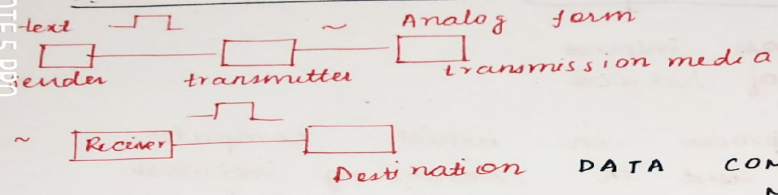 text Analog form
sender transmitter transmission media
~ Reciver
Destination DATA COM